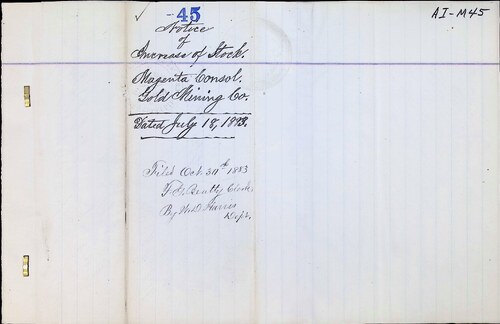 ✓ -45
AI-M45
Notice
of
Increase of Stock.
Magenta Consol.
Gold Mining Co.
Dated July 18, 1883.
Filed Oct 30th 1883
Beatty Clerk
By Harris
Dep't.